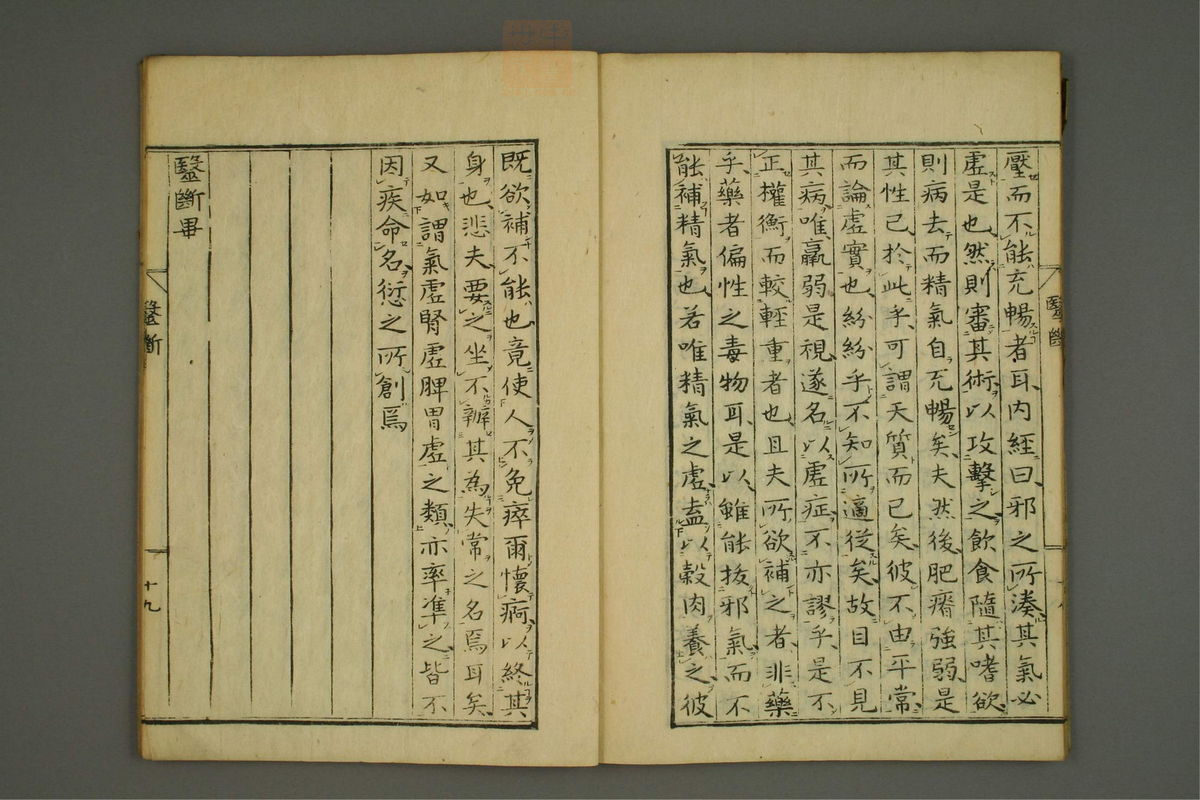 壓而不能充暢者耳内經曰邪之所湊其氣必
虛是也然則審其術以攻擊之飲食隨其嗜欲
則病去而精氣自充暢矣夫然後肥瘠強弱是
其性已於此乎可謂天質而已矣彼不由平常
而論虛實也紛紛乎不知所適從矣故目不見
其病唯羸弱是視遂名以虛症不亦謬乎是不
正權衡而較輕重者也且夫所欲補之者非藥
乎藥者偏性之毒物耳是以雖能拔邪氣而不
能補精氣也若唯精氣之虛盍以穀肉養之彼
既欲補不能也竟使人不免瘁爾懷痾以終其
身也悲夫要之坐不辨其為失常之名焉耳矣
又如謂氣虛腎虛脾胃虛之類亦率準之皆不
因疾命名愆之所創焉
毉斷畢
毉斷
十九